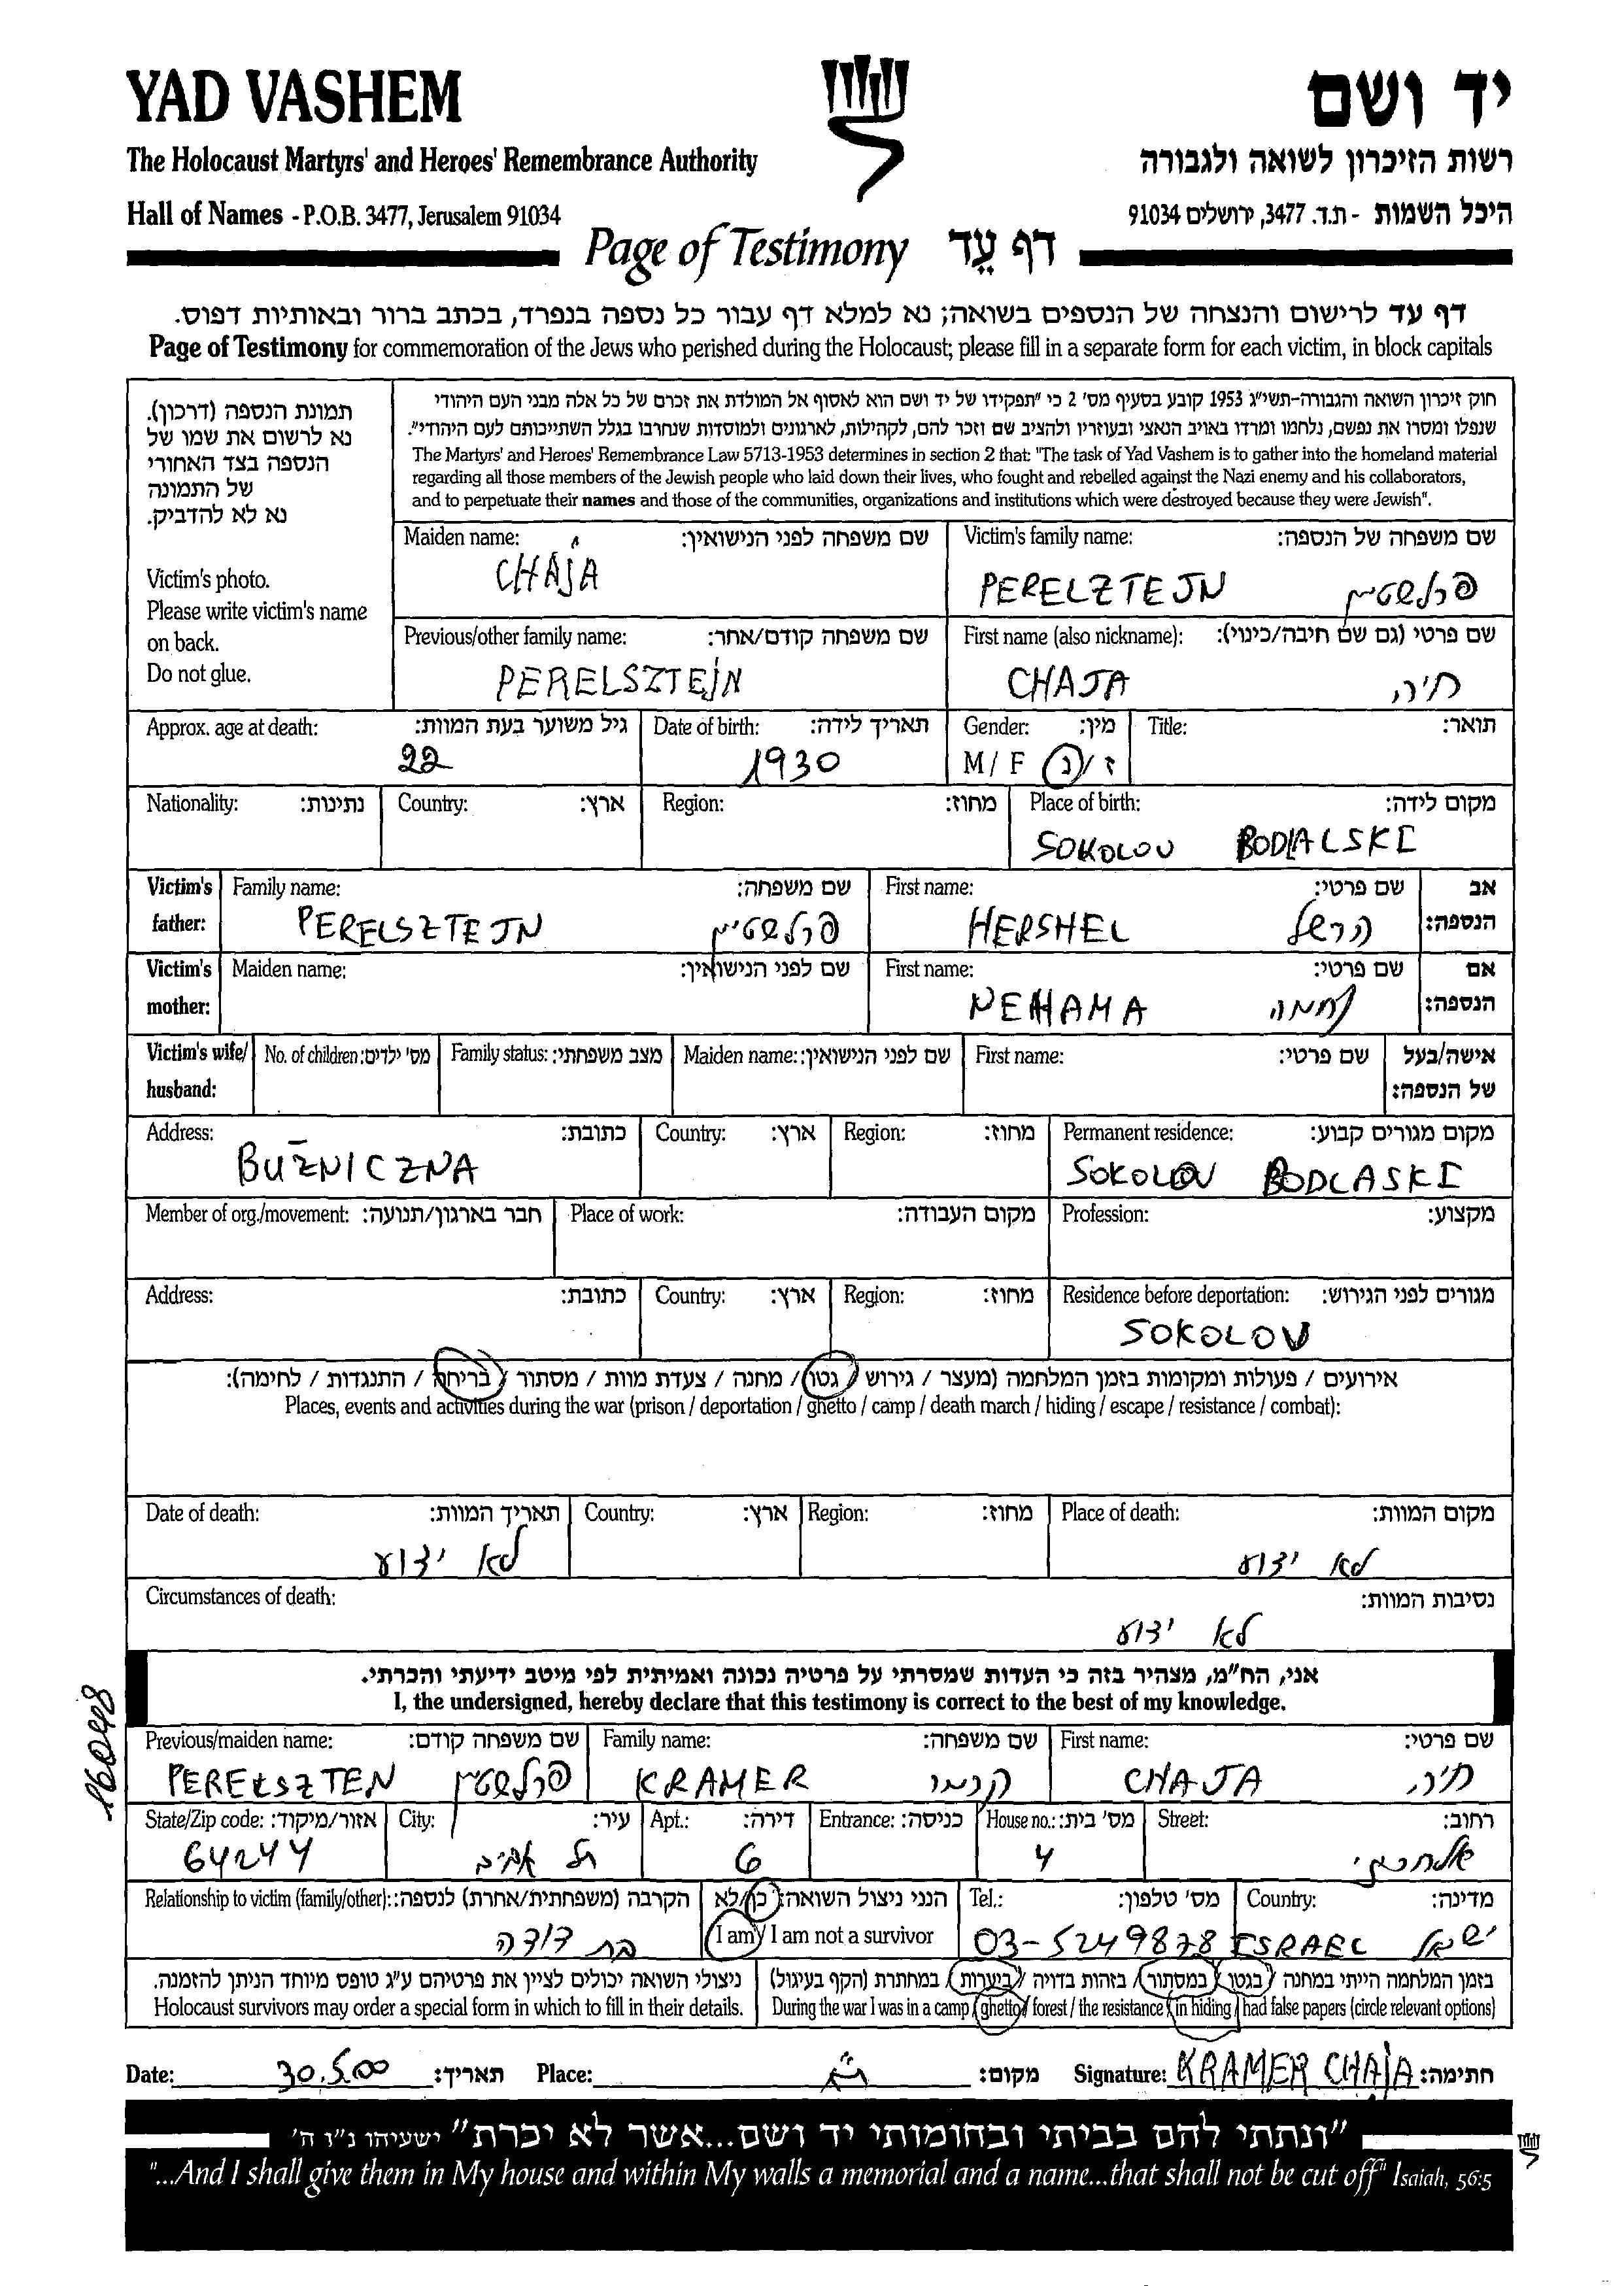 YAD VASHEM
יד ושם
The Holocaust Martyrs' and Heroes' Remembrance Authority
רשות הזיכרון לשואה ולגבורה
Hall of Names - P.O.B. 3477, Jerusalem 91034
היכל השמות - ת.ד. 3477, ירושלים 91034
Page of Testimony דף עֵד
דף עד לרישום והנצחה של הנספים בשואה; נא למלא דף עבור כל נספה בנפרד, בכתב ברור ובאותיות דפוס.
Page of Testimony for commemoration of the Jews who perished during the Holocaust; please fill in a separate form for each victim, in block capitals
תמונת הנספה (דרכון).
נא לרשום את שמו של
הנספה בצד האחורי
של התמונה
נא לא להדביק.
Victim's photo.
Please write victim's name
on back.
Do not glue.
חוק זיכרון השואה והגבורה-תשי"ג 1953 קובע בסעיף מס' 2 כי "תפקידו של יד ושם הוא לאסוף אל המולדת את זכרם של כל אלה מבני העם היהודי
שנפלו ומסרו את נפשם, נלחמו ומרדו באויב הנאצי ובעוזריו ולהציב שם וזכר להם, לקהילות, לארגונים ולמוסדות שנחרבו בגלל השתייכותם לעם היהודי".
The Martyrs' and Heroes' Remembrance Law 5713-1953 determines in section 2 that: "The task of Yad Vashem is to gather into the homeland material
regarding all those members of the Jewish people who laid down their lives, who fought and rebelled against the Nazi enemy and his collaborators,
and to perpetuate their names and those of the communities, organizations and institutions which were destroyed because they were Jewish".
Maiden name: שם משפחה לפני הנישואין:
CHAJA
Victim's family name: שם משפחה של הנספה:
PERELZTEJN פרלשטיין
Previous/other family name: שם משפחה קודם/אחר:
PERELSZTEJN
First name (also nickname): שם פרטי (גם שם חיבה/כינוי):
CHAJA חיה
Approx. age at death: גיל משוער בעת המוות:
22
Date of birth: תאריך לידה:
1930
Gender: מין:
M / F ז / נ
Title: תואר:
Nationality: נתינות:
Country: ארץ:
Region: מחוז:
Place of birth: מקום לידה:
SOKOLOV BODLALSKI
Victim's father:
Family name: שם משפחה:
PERELSZTEJN פרלשטיין
First name: שם פרטי:
HERSHEL הרשל
אב הנספה:
Victim's mother:
Maiden name: שם לפני הנישואין:
First name: שם פרטי:
NEHAMA נחמה
אם הנספה:
Victim's wife/ husband:
No. of children: מס' ילדים:
Family status: מצב משפחתי:
Maiden name: שם לפני הנישואין:
First name: שם פרטי:
אישה/בעל של הנספה:
Address: כתובת:
BUŻNICZNA
Country: ארץ:
Region: מחוז:
Permanent residence: מקום מגורים קבוע:
SOKOLOV BODLASKI
Member of org./movement: חבר בארגון/תנועה:
Place of work: מקום העבודה:
Profession: מקצוע:
Address: כתובת:
Country: ארץ:
Region: מחוז:
Residence before deportation: מגורים לפני הגירוש:
SOKOLOV
אירועים / פעולות ומקומות בזמן המלחמה (מעצר / גירוש / גטו / מחנה / צעדת מוות / מסתור / בריחה / התנגדות / לחימה):
Places, events and activities during the war (prison / deportation / ghetto / camp / death march / hiding / escape / resistance / combat):
Date of death: תאריך המוות:
לא ידוע
Country: ארץ:
Region: מחוז:
Place of death: מקום המוות:
לא ידוע
Circumstances of death: נסיבות המוות:
לא ידוע
אני, הח"מ, מצהיר בזה כי העדות שמסרתי על פרטיה נכונה ואמיתית לפי מיטב ידיעתי והכרתי.
I, the undersigned, hereby declare that this testimony is correct to the best of my knowledge.
16048
Previous/maiden name: שם משפחה קודם:
PERELSZTEN פרלשטיין
Family name: שם משפחה:
KRAMER קרמר
First name: שם פרטי:
CHAJA חיה
State/Zip code: אזור/מיקוד:
64244
City: עיר:
תל אביב
Apt.: דירה:
6
Entrance: כניסה:
House no.: מס' בית:
4
Street: רחוב:
Relationship to victim (family/other): הקרבה (משפחתית/אחרת) לנספה:
בת דודה
הנני ניצול השואה: כן/לא
I am / I am not a survivor
Tel.: מס' טלפון:
03-5249878
Country: מדינה:
ISRAEL ישראל
ניצולי השואה יכולים לציין את פרטיהם ע"ג טופס מיוחד הניתן להזמנה.
Holocaust survivors may order a special form in which to fill in their details.
בזמן המלחמה הייתי במחנה / בגטו / במסתור / בזהות בדויה / ביערות / במחתרת (הקף בעיגול)
During the war I was in a camp / ghetto / forest / the resistance / in hiding / had false papers (circle relevant options)
Date: 30.5.00 תאריך:
Place: ת"א מקום:
Signature: KRAMER CHAJA חתימה:
"ונתתי להם בביתי ובחומותי יד ושם...אשר לא יכרת" ישעיהו נ"ו ה'
"...And I shall give them in My house and within My walls a memorial and a name...that shall not be cut off" Isaiah, 56:5